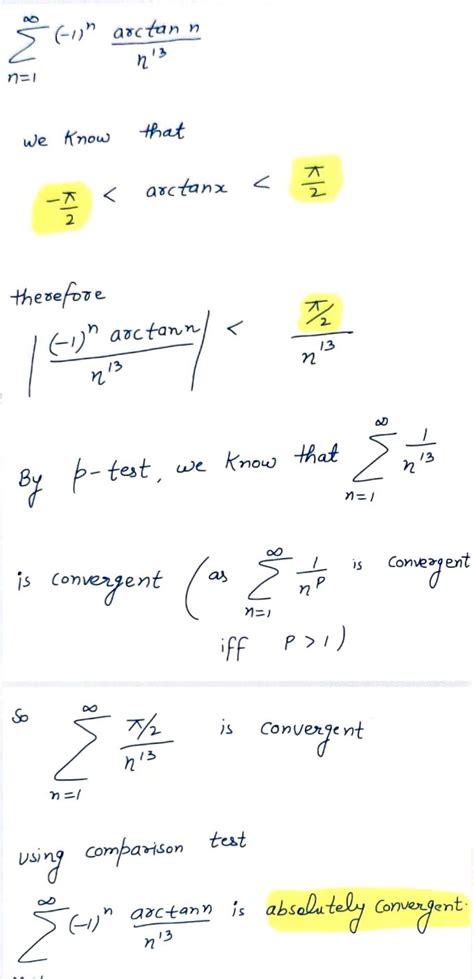 ∞
∑ (-1)ⁿ arctan n / n¹³
n=1
we know that
-π/2 < arctanx < π/2
therefore
|(-1)ⁿ arctann / n¹³| < π/2 / n¹³
By p-test, we know that ∞ ∑ n=1 1/n¹³
is convergent (as ∞ ∑ n=1 1/nᵖ is convergent
iff p>1)
So ∞ ∑ n=1 π/2 / n¹³ is convergent
using comparison test
∞ ∑ (-1)ⁿ arctann / n¹³ is absolutely convergent.